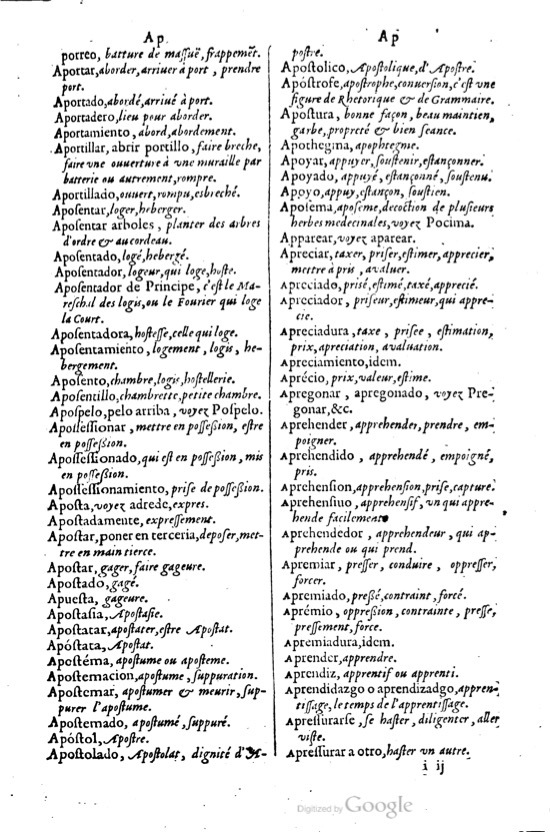 Ap
porreo, batture de massuë, frappemēt.
Aportar, aborder, arriuer à port, prendre
port.
Aportado, abordé, arriué à port.
Aportadero, lieu pour aborder.
Aportamiento, abord, abordement.
Aportillar, abrir portillo, faire breche,
faire vne ouuerture à vne muraille par
batterie ou autrement, rompre.
Aportillado, ouuert, rompu, esbreché.
Aposentar, loger, heberger.
Aposentar arboles, planter des arbres
d'ordre & au cordeau.
Aposentado, logé, hebergé.
Aposentador, logeur, qui loge, hoste.
Aposentador de Principe, c'est le Ma-
reschal des logis, ou le Fourier qui loge
la Court.
Aposentadora, hostesse, celle qui loge.
Aposentamiento, logement, logis, he-
bergement.
Aposento, chambre, logis, hostellerie.
Aposentillo, chambrette, petite chambre.
Apospelo, pelo arriba, voyez Pospelo.
Apossessionar, mettre en possession, estre
en possession.
Apossessionado, qui est en possession, mis
en possession.
Apossessionamiento, prise de possession.
Aposta, voyez adrede, expres.
Apostadamente, expressement.
Apostar, poner en terceria, deposer, met-
tre en main tierce.
Apostar, gager, faire gageure.
Apostado, gagé.
Apuesta, gageure.
Apostasia, Apostasie.
Apostatar, apostater, estre Apostat.
Apóstata, Apostat.
Apostéma, apostume ou aposteme.
Apostemacion, apostume, suppuration.
Apostemar, apostumer & meurir, sup-
purer l'apostume.
Apostemado, apostumé, suppuré.
Apóstol, Apostre.
Apostolado, Apostolat, dignité d'A-
Ap
postre.
Apostolico, Apostolique, d'Apostre.
Apóstrofe, apostrophe, conuersion, c'est vne
figure de Rhetorique & de Grammaire.
Apostura, bonne façon, beau maintien,
garbe, propreté & bien seance.
Apothegina, apophtegme.
Apoyar, appuyer, soustenir, estançonner.
Apoyado, appuyé, estançonné, soustenu.
Apoyo, appuy, estançon, soustien.
Aposema, aposeme, decoction de plusieurs
herbes medecinales, voyez Pocima.
Apparear, voyez aparear.
Apreciar, taxer, priser, estimer, apprecier,
mettre à pris, avaluer.
Apreciado, prisé, estimé, taxé, apprecié.
Apreciador, priseur, estimeur, qui appre-
cie.
Apreciadura, taxe, prisee, estimation,
prix, apreciation, avaluation.
Apreciamiento, idem.
Aprécio, prix, valeur, estime.
Apregonar, apregonado, voyez Pre-
gonar, &c.
Aprehender, apprehender, prendre, em-
poigner.
Aprehendido, apprehendé, empoigné,
pris.
Aprehension, apprehension, prise, capture.
Aprehensiuo, apprehensif, vn qui appre-
hende facilement
Aprehendedor, apprehendeur, qui ap-
prehende ou qui prend.
Apremiar, presser, conduire, oppresser,
forcer.
Apremiado, pressé, contraint, forcé.
Aprémio, oppression, contrainte, presse,
pressement, force.
Apremiadura, idem.
Aprender, apprendre.
Aprendiz, apprentif ou apprenti.
Aprendidazgo o aprendizadgo, appren-
tissage, le temps de l'apprentissage.
Apressurarse, se haster, diligenter, aller
viste.
Apressurar a otro, haster vn autre.
i ij
Digitized by Google